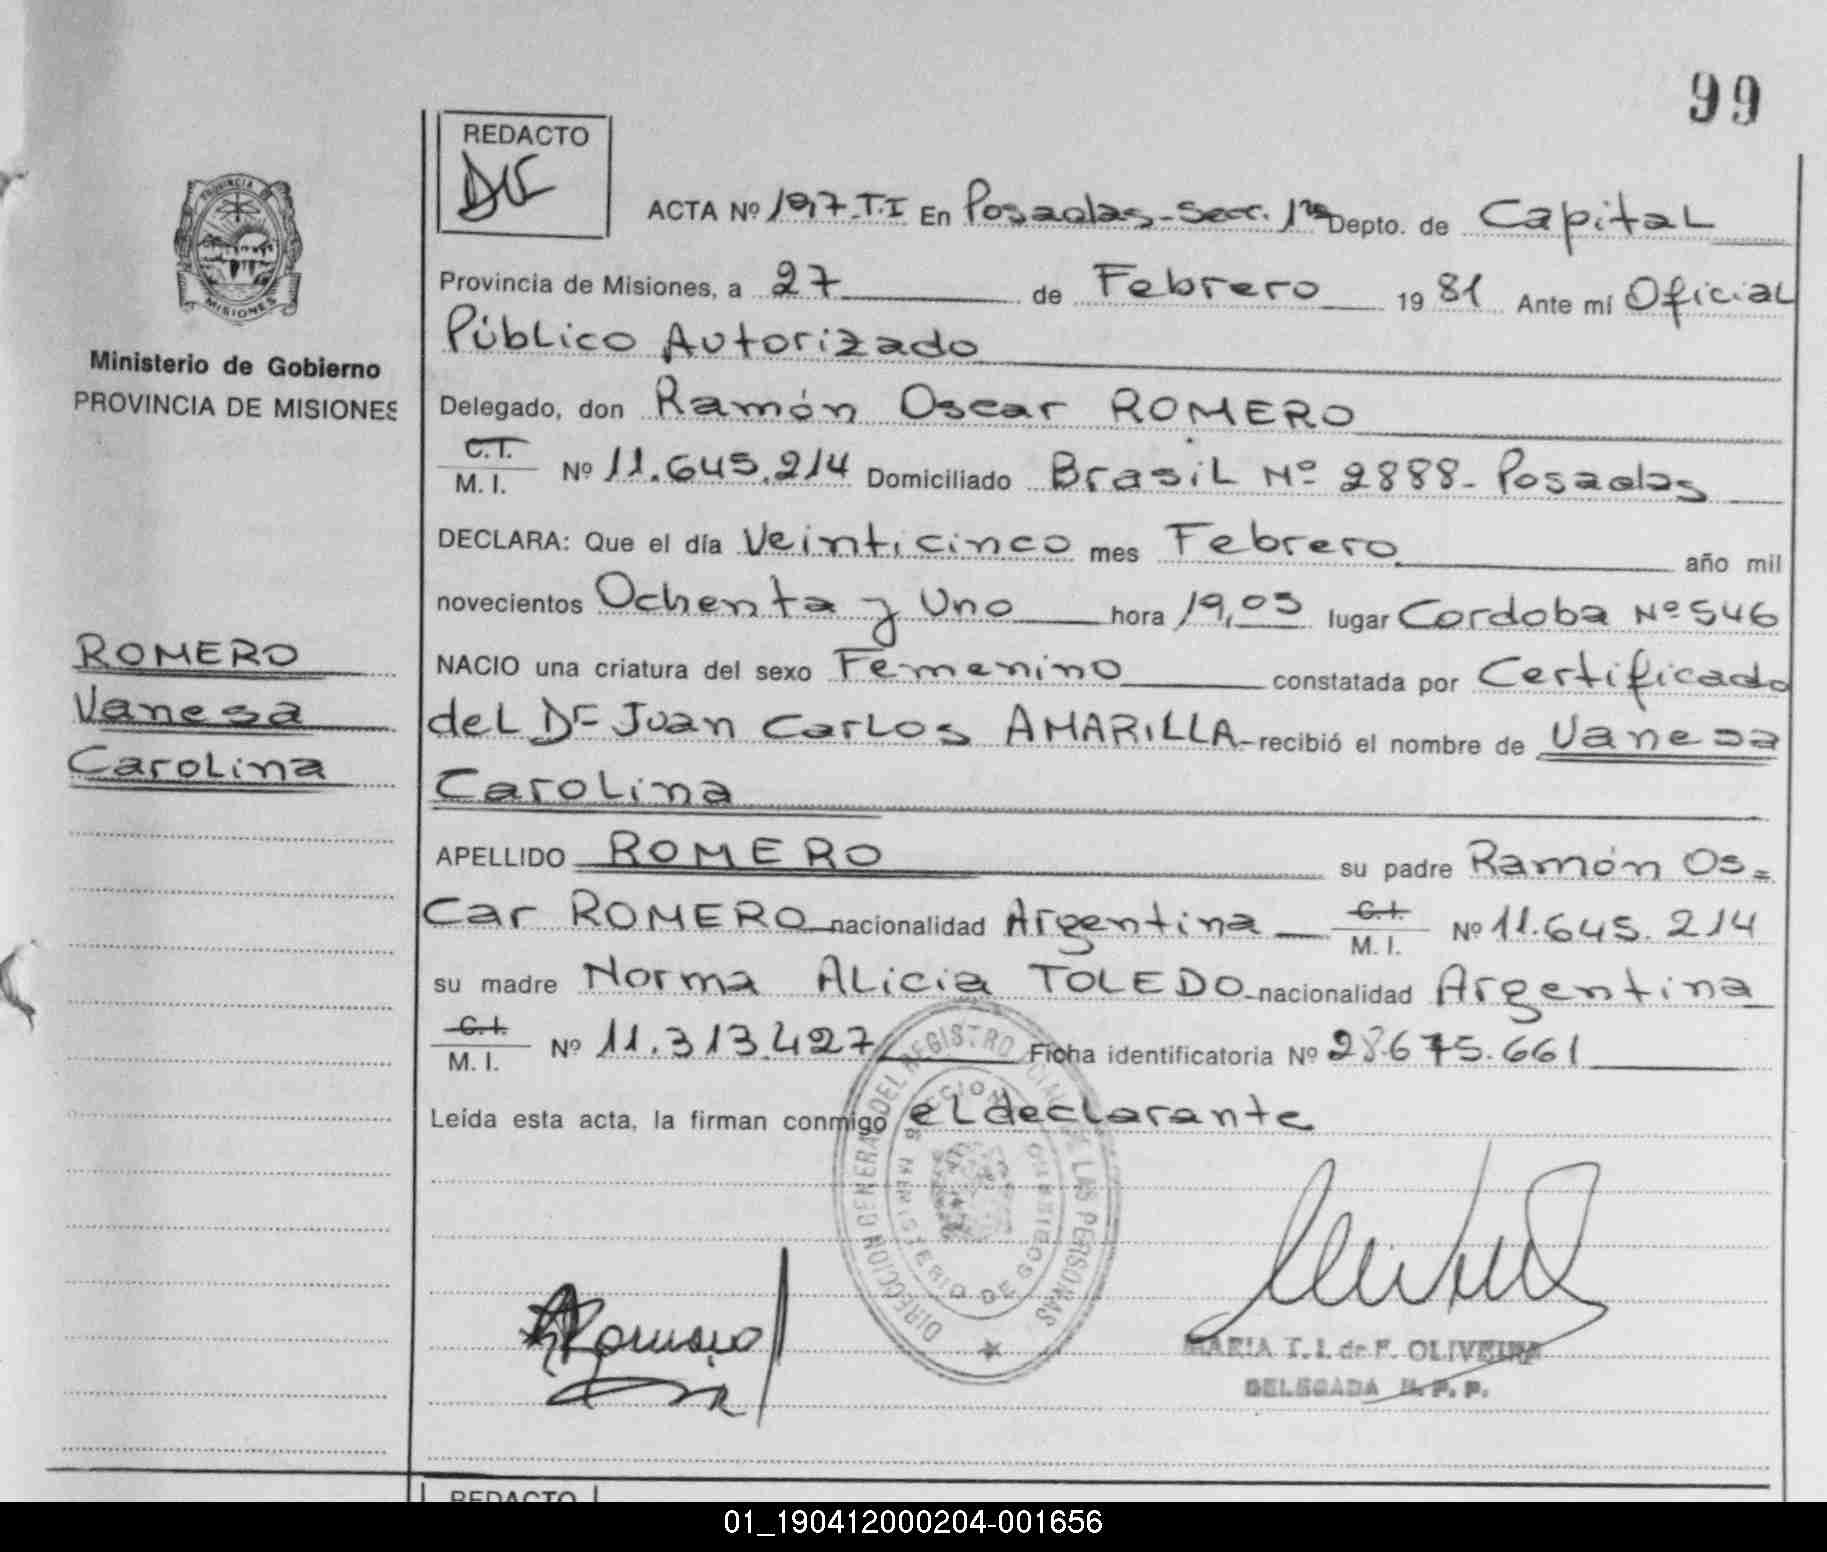 99
REDACTO
PROVINCIA DE
MISIONES
Ministerio de Gobierno
PROVINCIA DE MISIONES
ROMERO
Vanesa
Carolina
ACTA Nº 197-T.I En Posadas-Secc. 1ra Depto. de Capital
Provincia de Misiones, a 27 de Febrero 1981 Ante mi Oficial
Público Autorizado
Delegado, don Ramón Oscar ROMERO
C.I. M. I. Nº 11.645.214 Domiciliado Brasil Nº 2888- Posadas
DECLARA: Que el día Veinticinco mes Febrero año mil
novecientos Ochenta y Uno hora 19,05 lugar Cordoba Nº 546
NACIO una criatura del sexo Femenino constatada por Certificado
del Dr Juan Carlos AMARILLA- recibió el nombre de Vanesa
Carolina
APELLIDO ROMERO su padre Ramón Os=
car ROMERO nacionalidad Argentina C.I. M. I. Nº 11.645.214
su madre Norma Alicia TOLEDO nacionalidad Argentina
C.I. M. I. Nº 11.313.427 Ficha identificatoria Nº 28.675.661
Leída esta acta, la firman conmigo el declarante
DIRECCION GENERAL DEL REGISTRO DE LAS PERSONAS
MINISTERIO DE GOBIERNO
Romero
MARIA T. I. de F. OLIVEIRA
DELEGADA R. P. P.
REDACTO
01_190412000204-001656